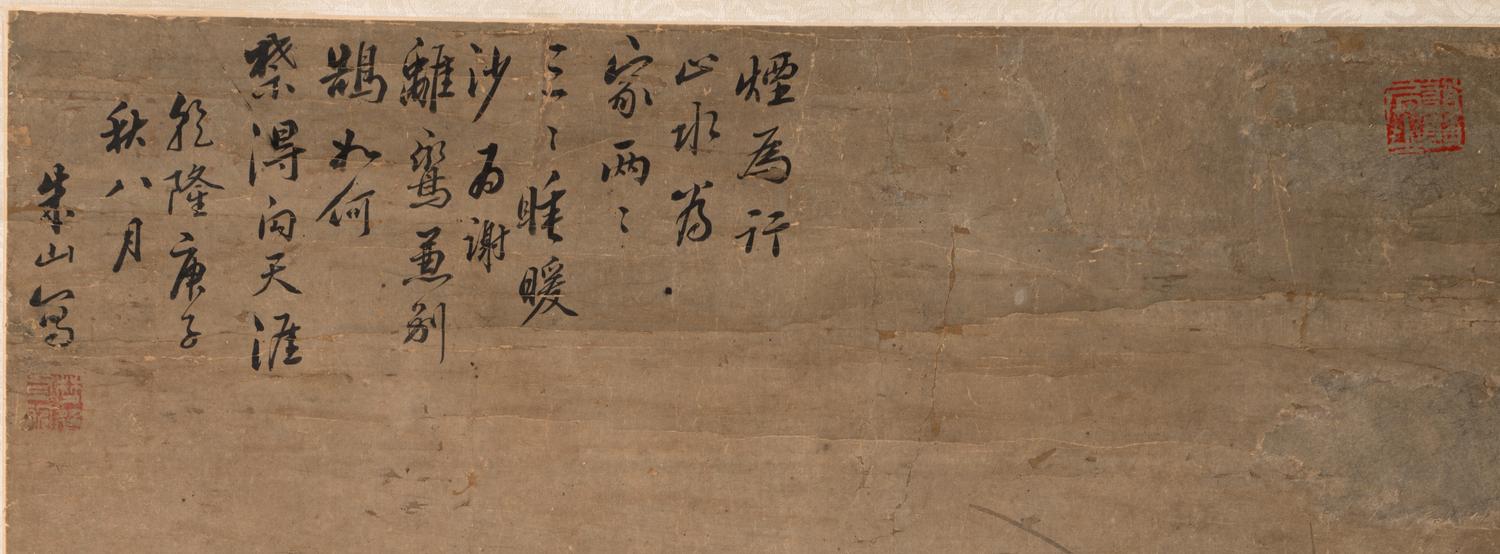 煙為行
止水為
家两〻
三〻睡暖
沙為謝
離鸞兼別
鵠如何
禁得向天涯
乾隆庚子
秋八月
朱山寫